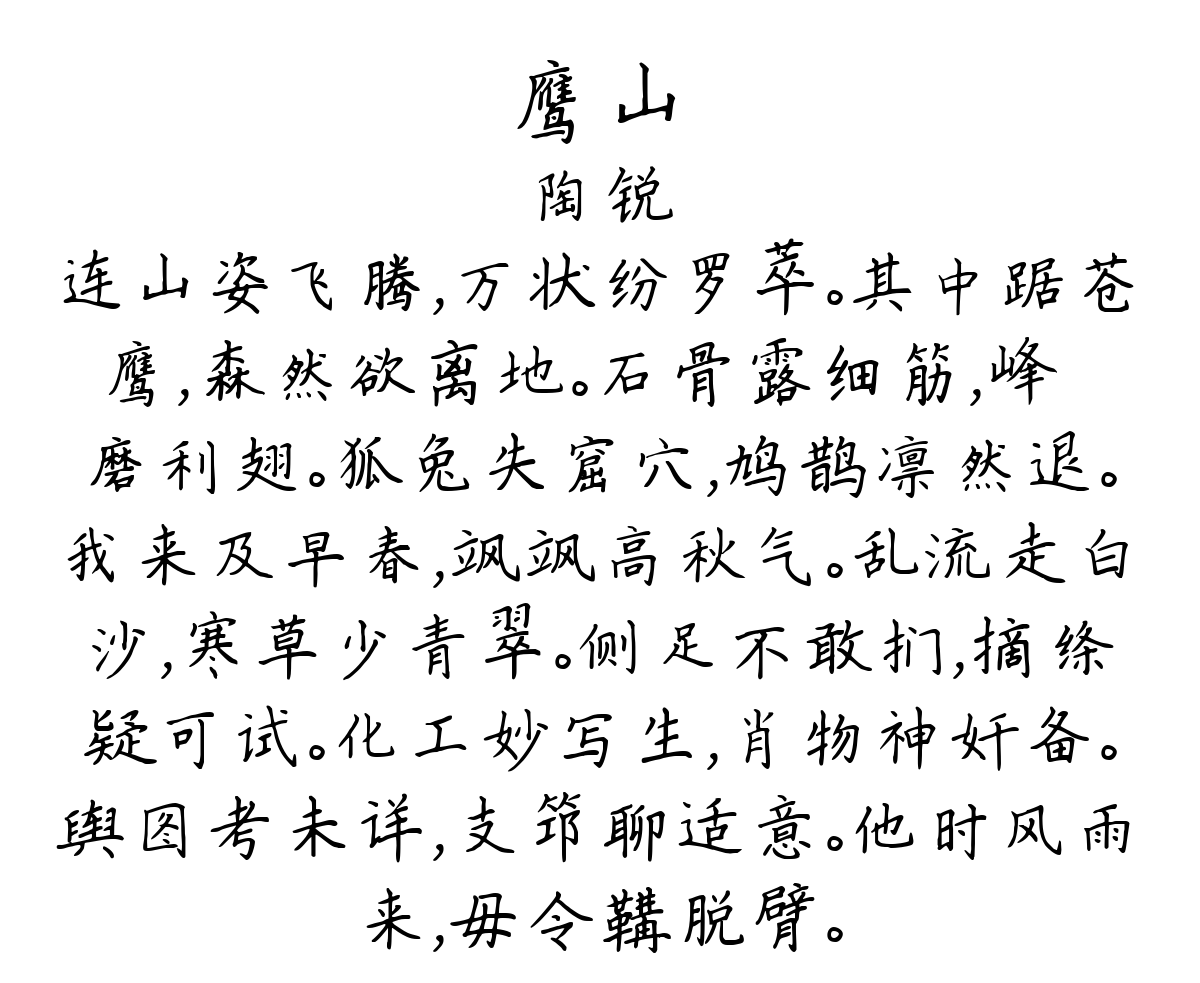 鹰山
陶锐
连山姿飞腾,万状纷罗萃。其中踞苍
鹰,森然欲离地。石骨露细筋,峰
磨利翅。狐兔失窟穴,鸠鹊凛然退。
我来及早春,飒飒高秋气。乱流走白
沙,寒草少青翠。侧足不敢扪,摘绦
疑可试。化工妙写生,肖物神奸备。
舆图考未详,支筇聊适意。他时风雨
来,毋令鞲脱臂。